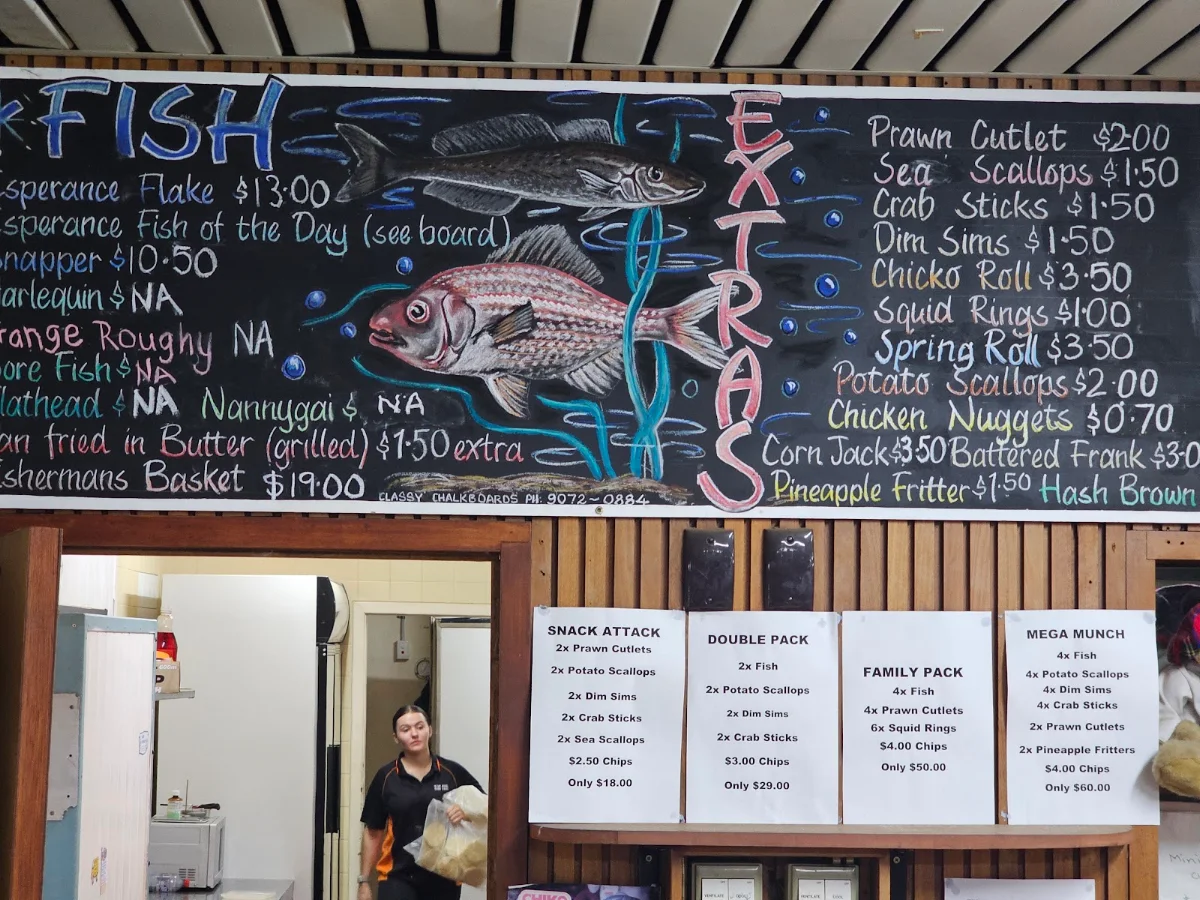 FISH
sperance Flake $13.00
sperance Fish of the Day (see board)
napper $10.50
arlequin $ NA
range Roughy NA
ore Fish $ NA
lathead $ NA Nannygai $ NA
an fried in Butter (grilled) $1.50 extra
ishermans Basket $19.00
CLASSY CHALKBOARDS PH: 9072-0884
EXTRAS
Prawn Cutlet $2.00
Sea Scallops $1.50
Crab Sticks $1.50
Dim Sims $1.50
Chicko Roll $3.50
Squid Rings $1.00
Spring Roll $3.50
Potato Scallops $2.00
Chicken Nuggets $0.70
Corn Jack $3.50 Battered Frank $3.0
Pineapple Fritter $1.50 Hash Brown
SNACK ATTACK
2x Prawn Cutlets
2x Potato Scallops
2x Dim Sims
2x Crab Sticks
2x Sea Scallops
$2.50 Chips
Only $18.00
DOUBLE PACK
2x Fish
2x Potato Scallops
2x Dim Sims
2x Crab Sticks
$3.00 Chips
Only $29.00
FAMILY PACK
4x Fish
4x Prawn Cutlets
6x Squid Rings
$4.00 Chips
Only $50.00
MEGA MUNCH
4x Fish
4x Potato Scallops
4x Dim Sims
4x Crab Sticks
2x Prawn Cutlets
2x Pineapple Fritters
$4.00 Chips
Only $60.00
CHIKO